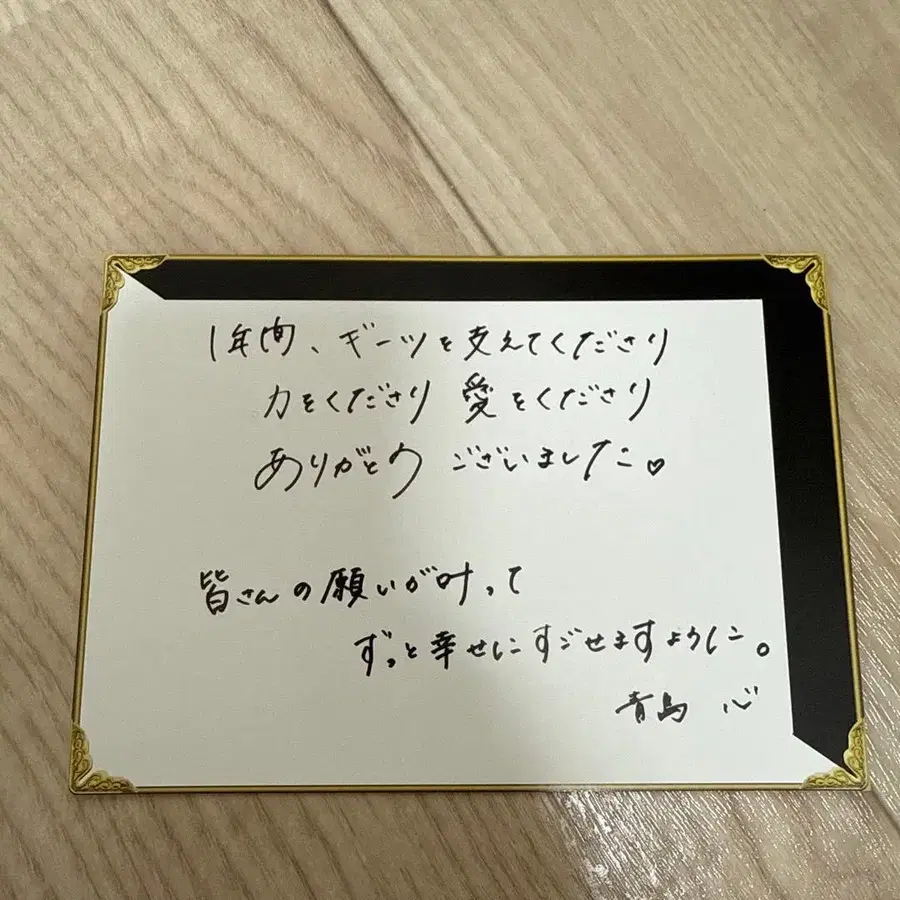 1年間、ギーツを支えてくださり
力をくださり 愛をくださり
ありがとう ございました♡
皆さんの願いが叶って
ずっと幸せにすごせますように。
青島 心